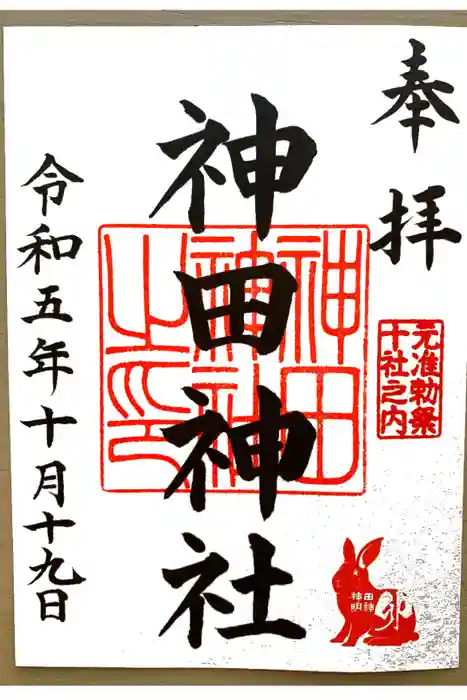 奉拝
元准勅祭
十社之内
神田神社
神田
神社
之印
卯
神田
神明
令和五年十月十九日